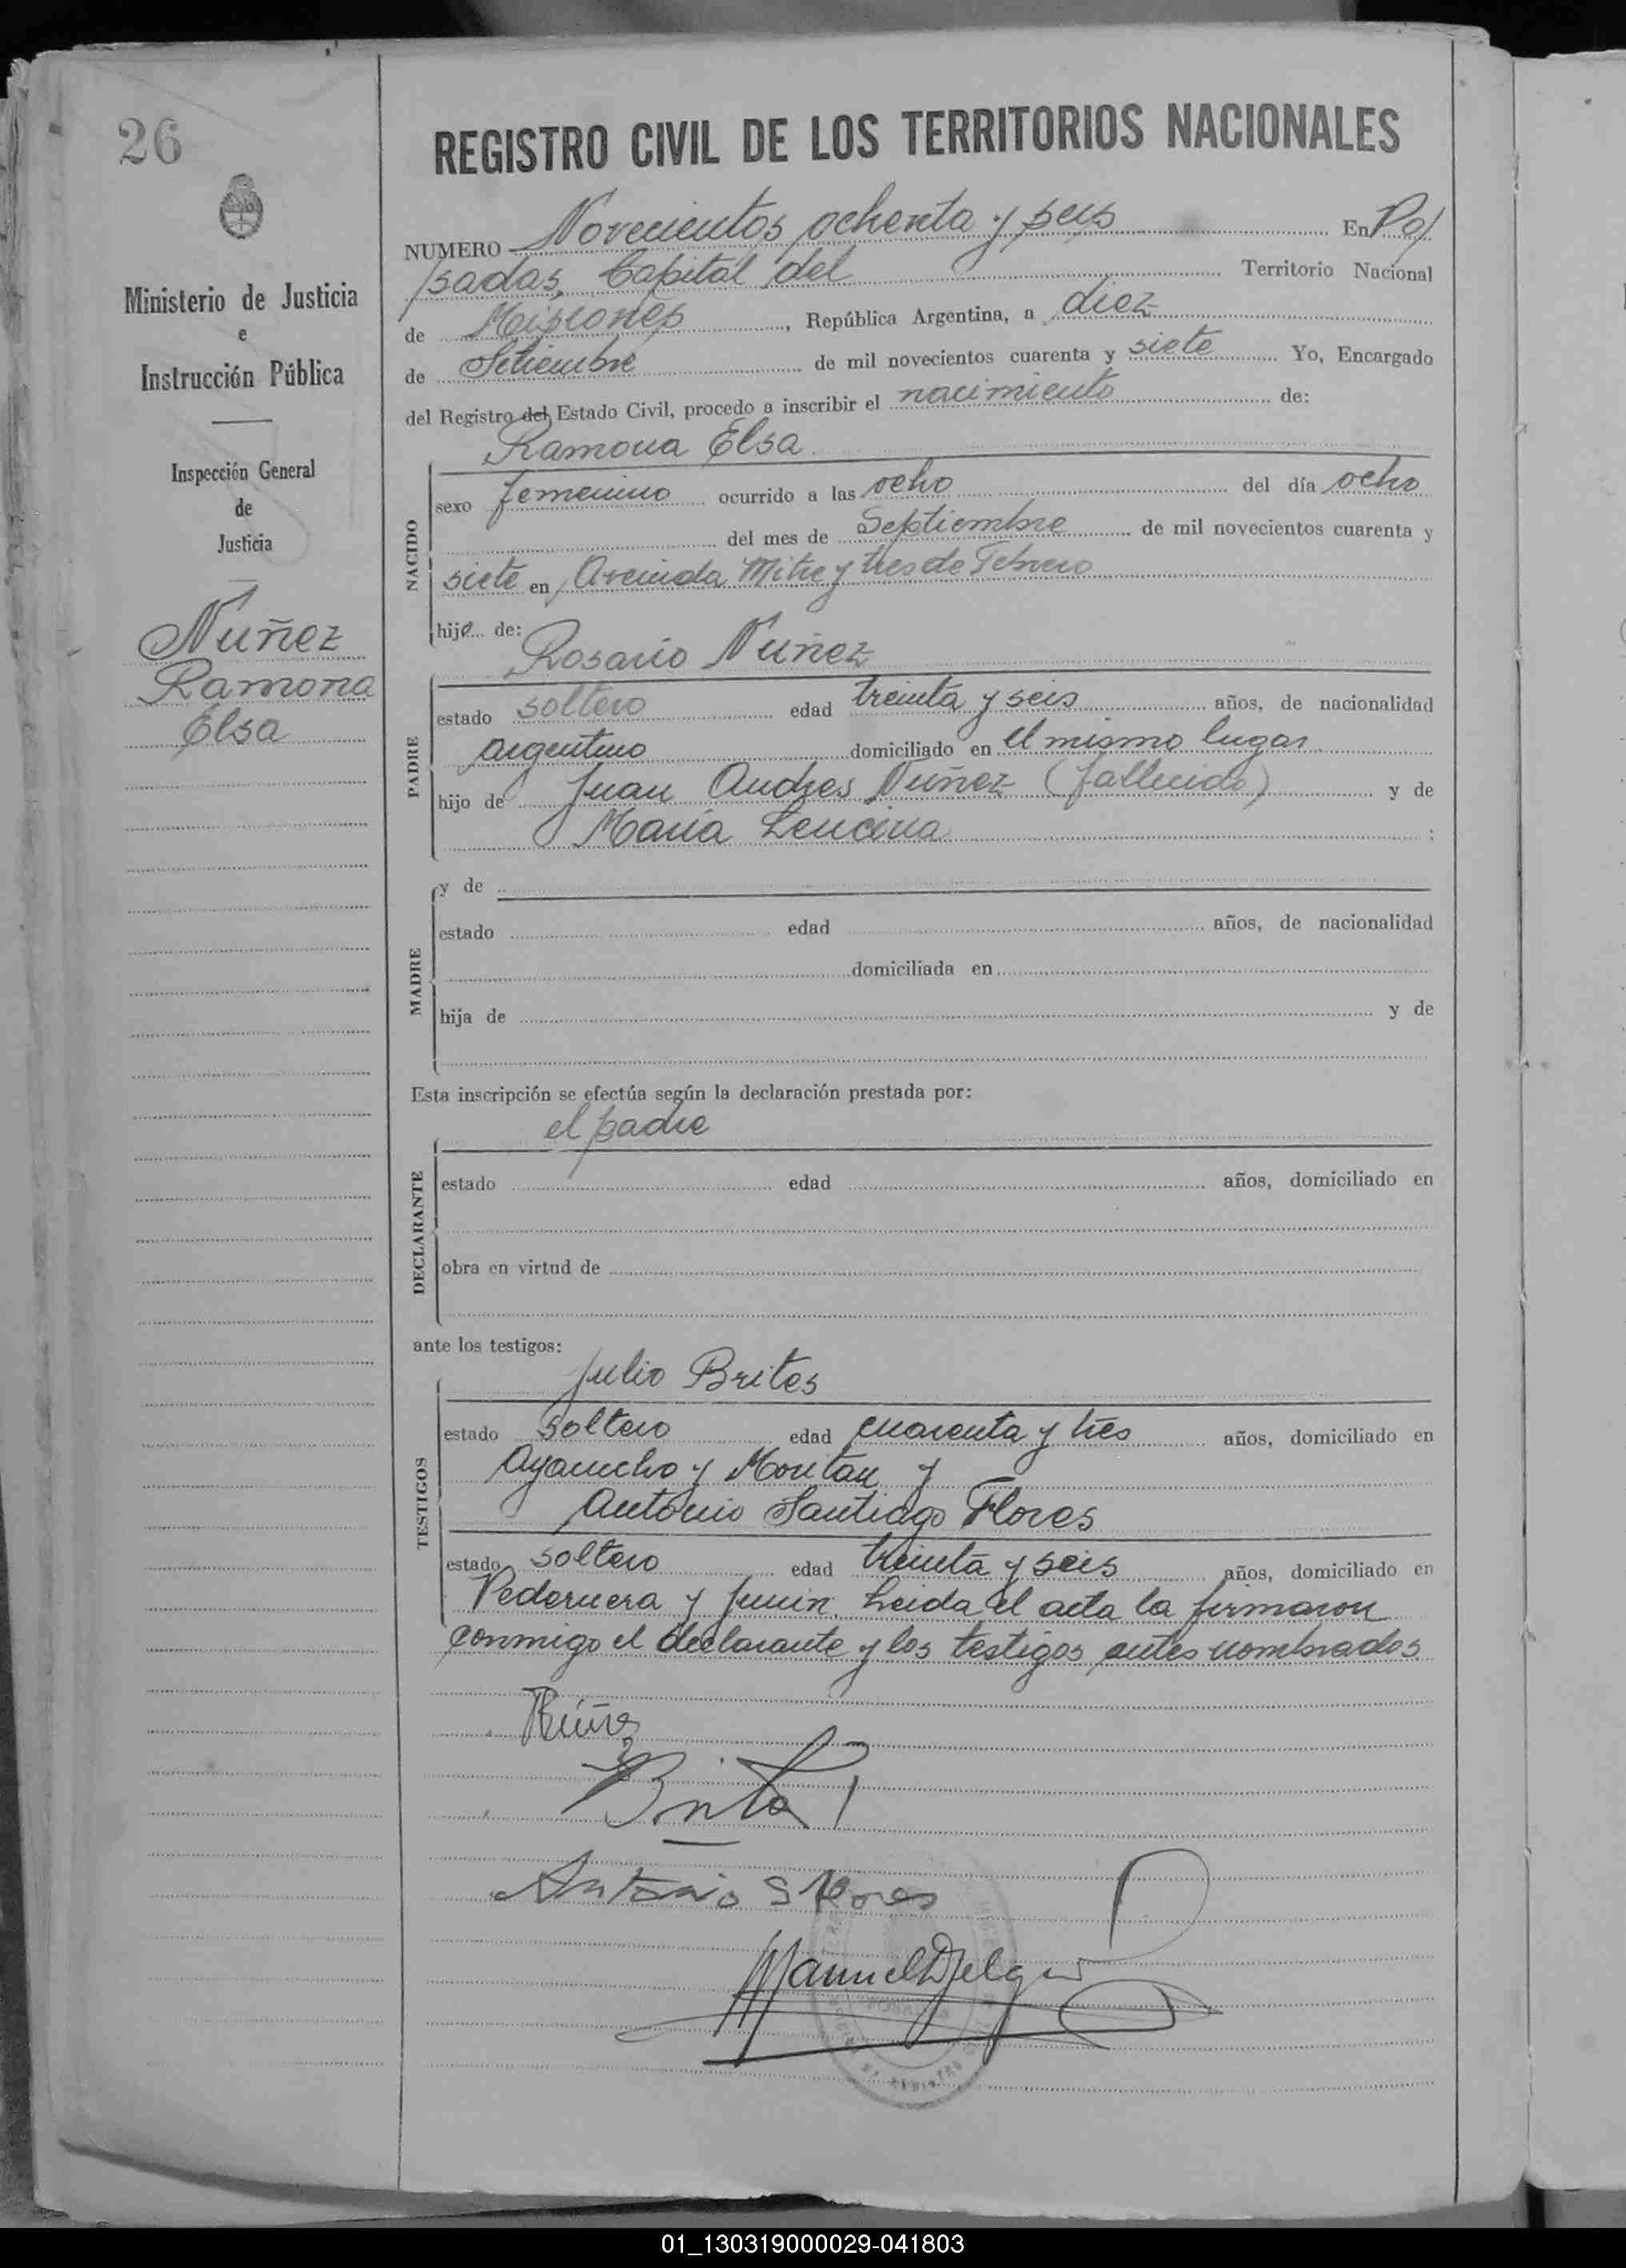 26
Ministerio de Justicia
e
Instrucción Pública
Inspección General
de
Justicia
Nuñez
Ramona
Elsa
REGISTRO CIVIL DE LOS TERRITORIOS NACIONALES
NUMERO Novecientos ochenta y seis En Po/
/sadas, Capital del Territorio Nacional
de Misiones, República Argentina, a diez
de Setiembre de mil novecientos cuarenta y siete Yo, Encargado
del Registro del Estado Civil, procedo a inscribir el nacimiento de:
Ramona Elsa
NACIDO
sexo femenino ocurrido a las ocho del día ocho
del mes de Septiembre de mil novecientos cuarenta y
siete en Avenida Mitre y tres de Febrero
hija de:
Rosario Nuñez
PADRE
estado soltero edad treinta y seis años, de nacionalidad
argentino domiciliado en el mismo lugar
hijo de Juan Andres Nuñez (fallecido) y de
María Lencina ;
MADRE
y de
estado edad años, de nacionalidad
domiciliada en
hija de y de
Esta inscripción se efectúa según la declaración prestada por:
el padre
DECLARANTE
estado edad años, domiciliado en
obra en virtud de
ante los testigos:
Julio Brites
TESTIGOS
estado soltero edad cuarenta y tres años, domiciliado en
Ayacucho y Moritan y
Antonio Santiago Flores
estado soltero edad treinta y seis años, domiciliado en
Pedernera y Junin. Leida el acta la firmaron
conmigo el declarante y los testigos antes nombrados
Antonio S Flores
01_130319000029-041803